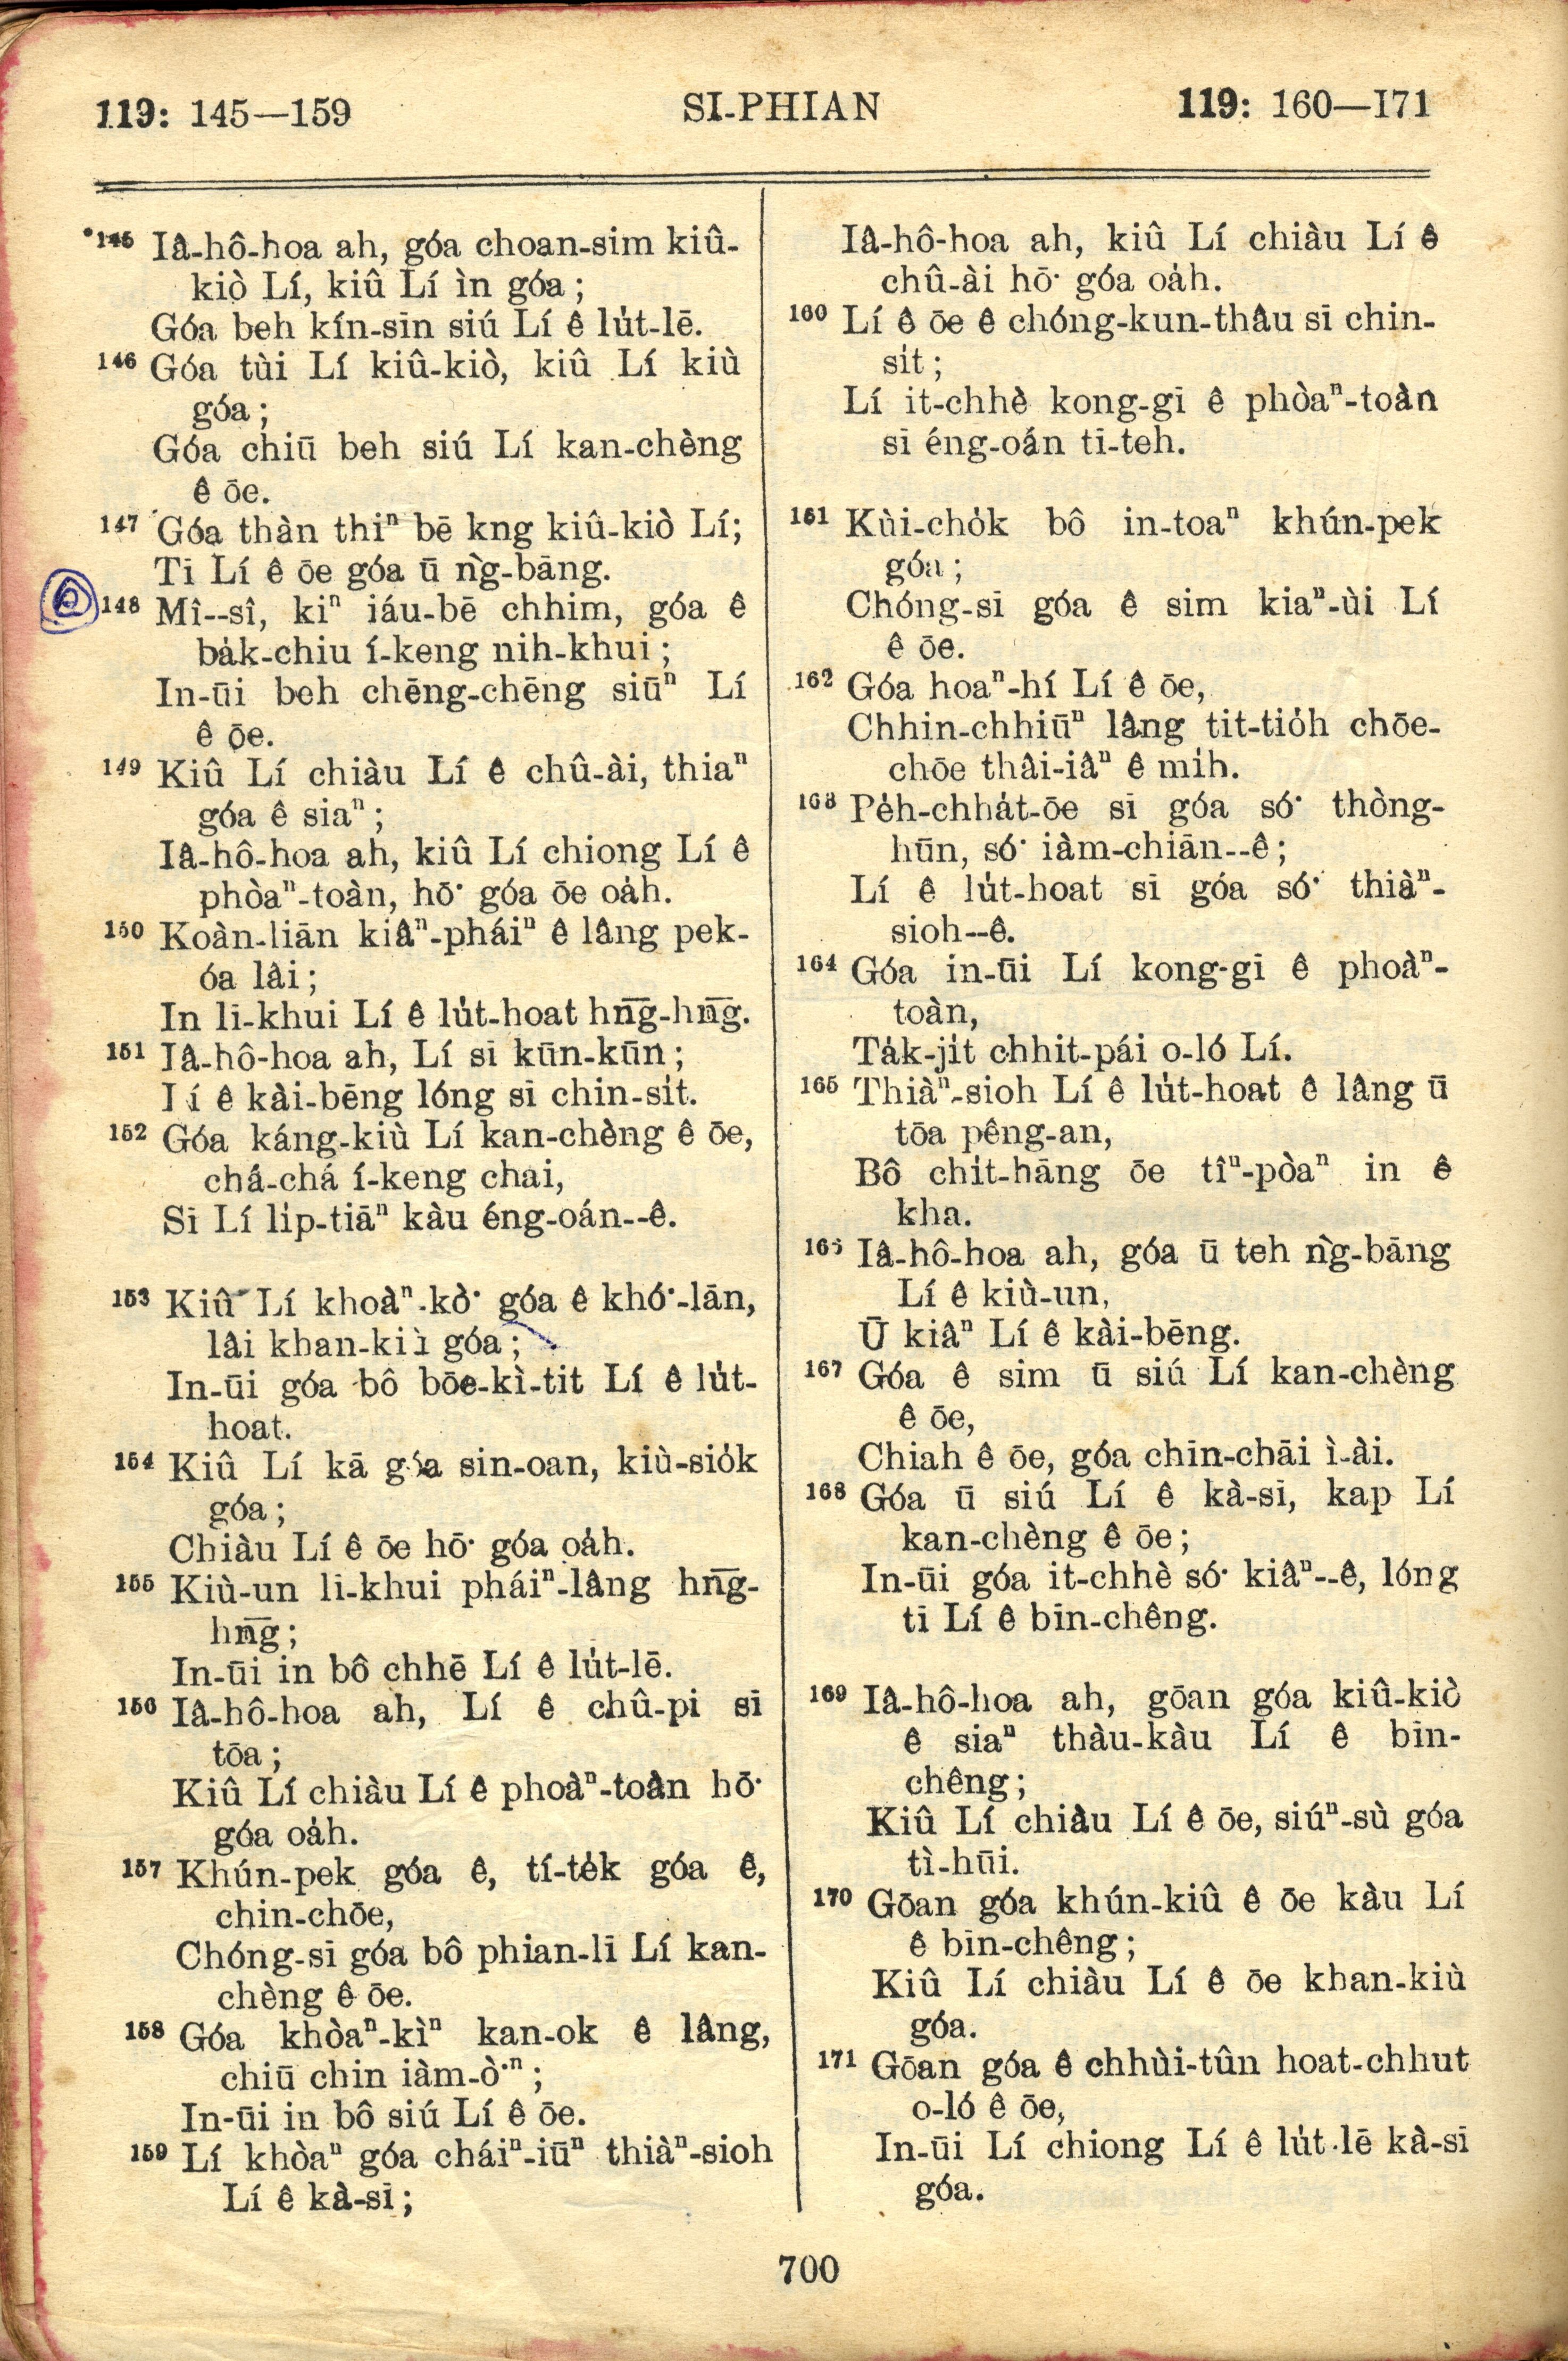 119: 145—159
SI-PHIAN
119: 160—171
145 Iâ-hô-hoa ah, góa choan-sim kiû-
kiò Lí, kiû Lí ìn góa;
Góa beh kín-sīn siú Lí ê lu̍t-lē.
146 Góa tùi Lí kiû-kiò, kiû Lí kiù
góa;
Góa chiū beh siú Lí kan-chèng
ê ōe.
147 Góa thàn thiⁿ bē kng kiû-kiò Lí;
Tī Lí ê ōe góa ū ǹg-bāng.
148 Mî--sî, kiⁿ iáu-bē chhim, góa ê
ba̍k-chiu í-keng nih-khui;
In-ūi beh chēng-chēng siūⁿ Lí
ê ōe.
149 Kiû Lí chiàu Lí ê chû-ài, thiaⁿ
góa ê siaⁿ;
Iâ-hô-hoa ah, kiû Lí chiong Lí ê
phòaⁿ-toàn, hō͘ góa ōe oa̍h.
150 Koàn-liān kiâⁿ-pháiⁿ ê lâng pek-
óa lâi;
In lī-khui Lí ê lu̍t-hoat hn̄g-hn̄g.
151 Iâ-hô-hoa ah, Lí sī kūn-kūn;
Lí ê kài-bēng lóng sī chin-si̍t.
152 Góa káng-kiù Lí kan-chèng ê ōe,
chá-chá í-keng chai,
Sī Lí li̍p-tiāⁿ kàu éng-oán--ê.
153 Kiû Lí khoàⁿ-kò͘ góa ê khó͘-lān,
lâi khan-kiù góa;
In-ūi góa bô bōe-kì-tit Lí ê lu̍t-
hoat.
154 Kiû Lí kā góa sin-oan, kiù-sio̍k
góa;
Chiàu Lí ê ōe hō͘ góa oa̍h.
155 Kiù-un lī-khui pháiⁿ-lâng hn̄g-
hn̄g;
In-ūi in bô chhē Lí ê lu̍t-lē.
156 Iâ-hô-hoa ah, Lí ê chû-pi sī
tōa;
Kiû Lí chiàu Lí ê phoàⁿ-toàn hō͘
góa oa̍h.
157 Khún-pek góa ê, tí-te̍k góa ê,
chin-chōe,
Chóng-sī góa bô phian-lī Lí kan-
chèng ê ōe.
158 Góa khòaⁿ-kìⁿ kan-ok ê lâng,
chiū chin iàm-ò͘ⁿ;
In-ūi in bô siú Lí ê ōe.
159 Lí khòaⁿ góa cháiⁿ-iūⁿ thiàⁿ-sioh
Lí ê kà-sī;
Iâ-hô-hoa ah, kiû Lí chiàu Lí ê
chû-ài hō͘ góa oa̍h.
160 Lí ê ōe ê chóng-kun-thâu sī chin-
si̍t;
Lí it-chhè kong-gī ê phòaⁿ-toàn
sī éng-oán tī-teh.
161 Kùi-cho̍k bô in-toaⁿ khún-pek
góa;
Chóng-sī góa ê sim kiaⁿ-ùi Lí
ê ōe.
162 Góa hoaⁿ-hí Lí ê ōe,
Chhin-chhiūⁿ lâng tit-tio̍h chōe-
chōe thâi-iâⁿ ê mi̍h.
163 Pe̍h-chha̍t-ōe sī góa só͘ thòng-
hūn, só͘ iàm-chiān--ê;
Lí ê lu̍t-hoat sī góa só͘ thiàⁿ-
sioh--ê.
164 Góa in-ūi Lí kong-gī ê phoàⁿ-
toàn,
Ta̍k-ji̍t chhit-pái o-ló Lí.
165 Thiàⁿ-sioh Lí ê lu̍t-hoat ê lâng ū
tōa pêng-an,
Bô chi̍t-hāng ōe tîⁿ-pòaⁿ in ê
kha.
166 Iâ-hô-hoa ah, góa ū teh ǹg-bāng
Lí ê kiù-un,
Ū kiâⁿ Lí ê kài-bēng.
167 Góa ê sim ū siú Lí kan-chèng
ê ōe,
Chiah ê ōe, góa chīn-chāi ì-ài.
168 Góa ū siú Lí ê kà-sī, kap Lí
kan-chèng ê ōe;
In-ūi góa it-chhè só͘ kiâⁿ--ê, lóng
tī Lí ê bīn-chêng.
169 Iâ-hô-hoa ah, gōan góa kiû-kiò
ê siaⁿ thàu-kàu Lí ê bīn-
chêng;
Kiû Lí chiàu Lí ê ōe, siúⁿ-sù góa
tì-hūi.
170 Gōan góa khún-kiû ê ōe kàu Lí
ê bīn-chêng;
Kiû Lí chiàu Lí ê ōe khan-kiù
góa.
171 Gōan góa ê chhùi-tûn hoat-chhut
o-ló ê ōe,
In-ūi Lí chiong Lí ê lu̍t-lē kà-sī
góa.
700